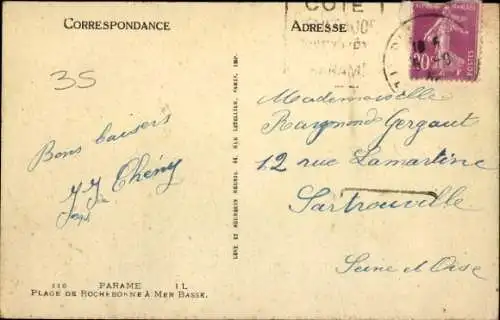 CORRESPONDANCE
ADRESSE
COTE
PARAME
20
POSTES
35
Bons baisers
JJ Chény
Mademoiselle
Raymonde Gergaut
12 rue Lamartine
Sartrouville
Seine et Oise
LEVY ET NEURDEIN REUNIS, 44, RUE LETELLIER, PARIS, IMP.
110 PARAME LL
PLAGE DE ROCHEBONNE À MER BASSE.